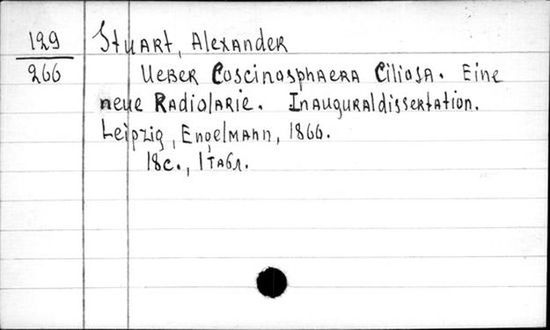 129
266
Stuart, Alexander
Ueber Coscinosphaera Ciliosa. Eine
neue Radiolarie. Inauguraldissertation.
Leipzig, Engelmann, 1866.
18с., 1 табл.